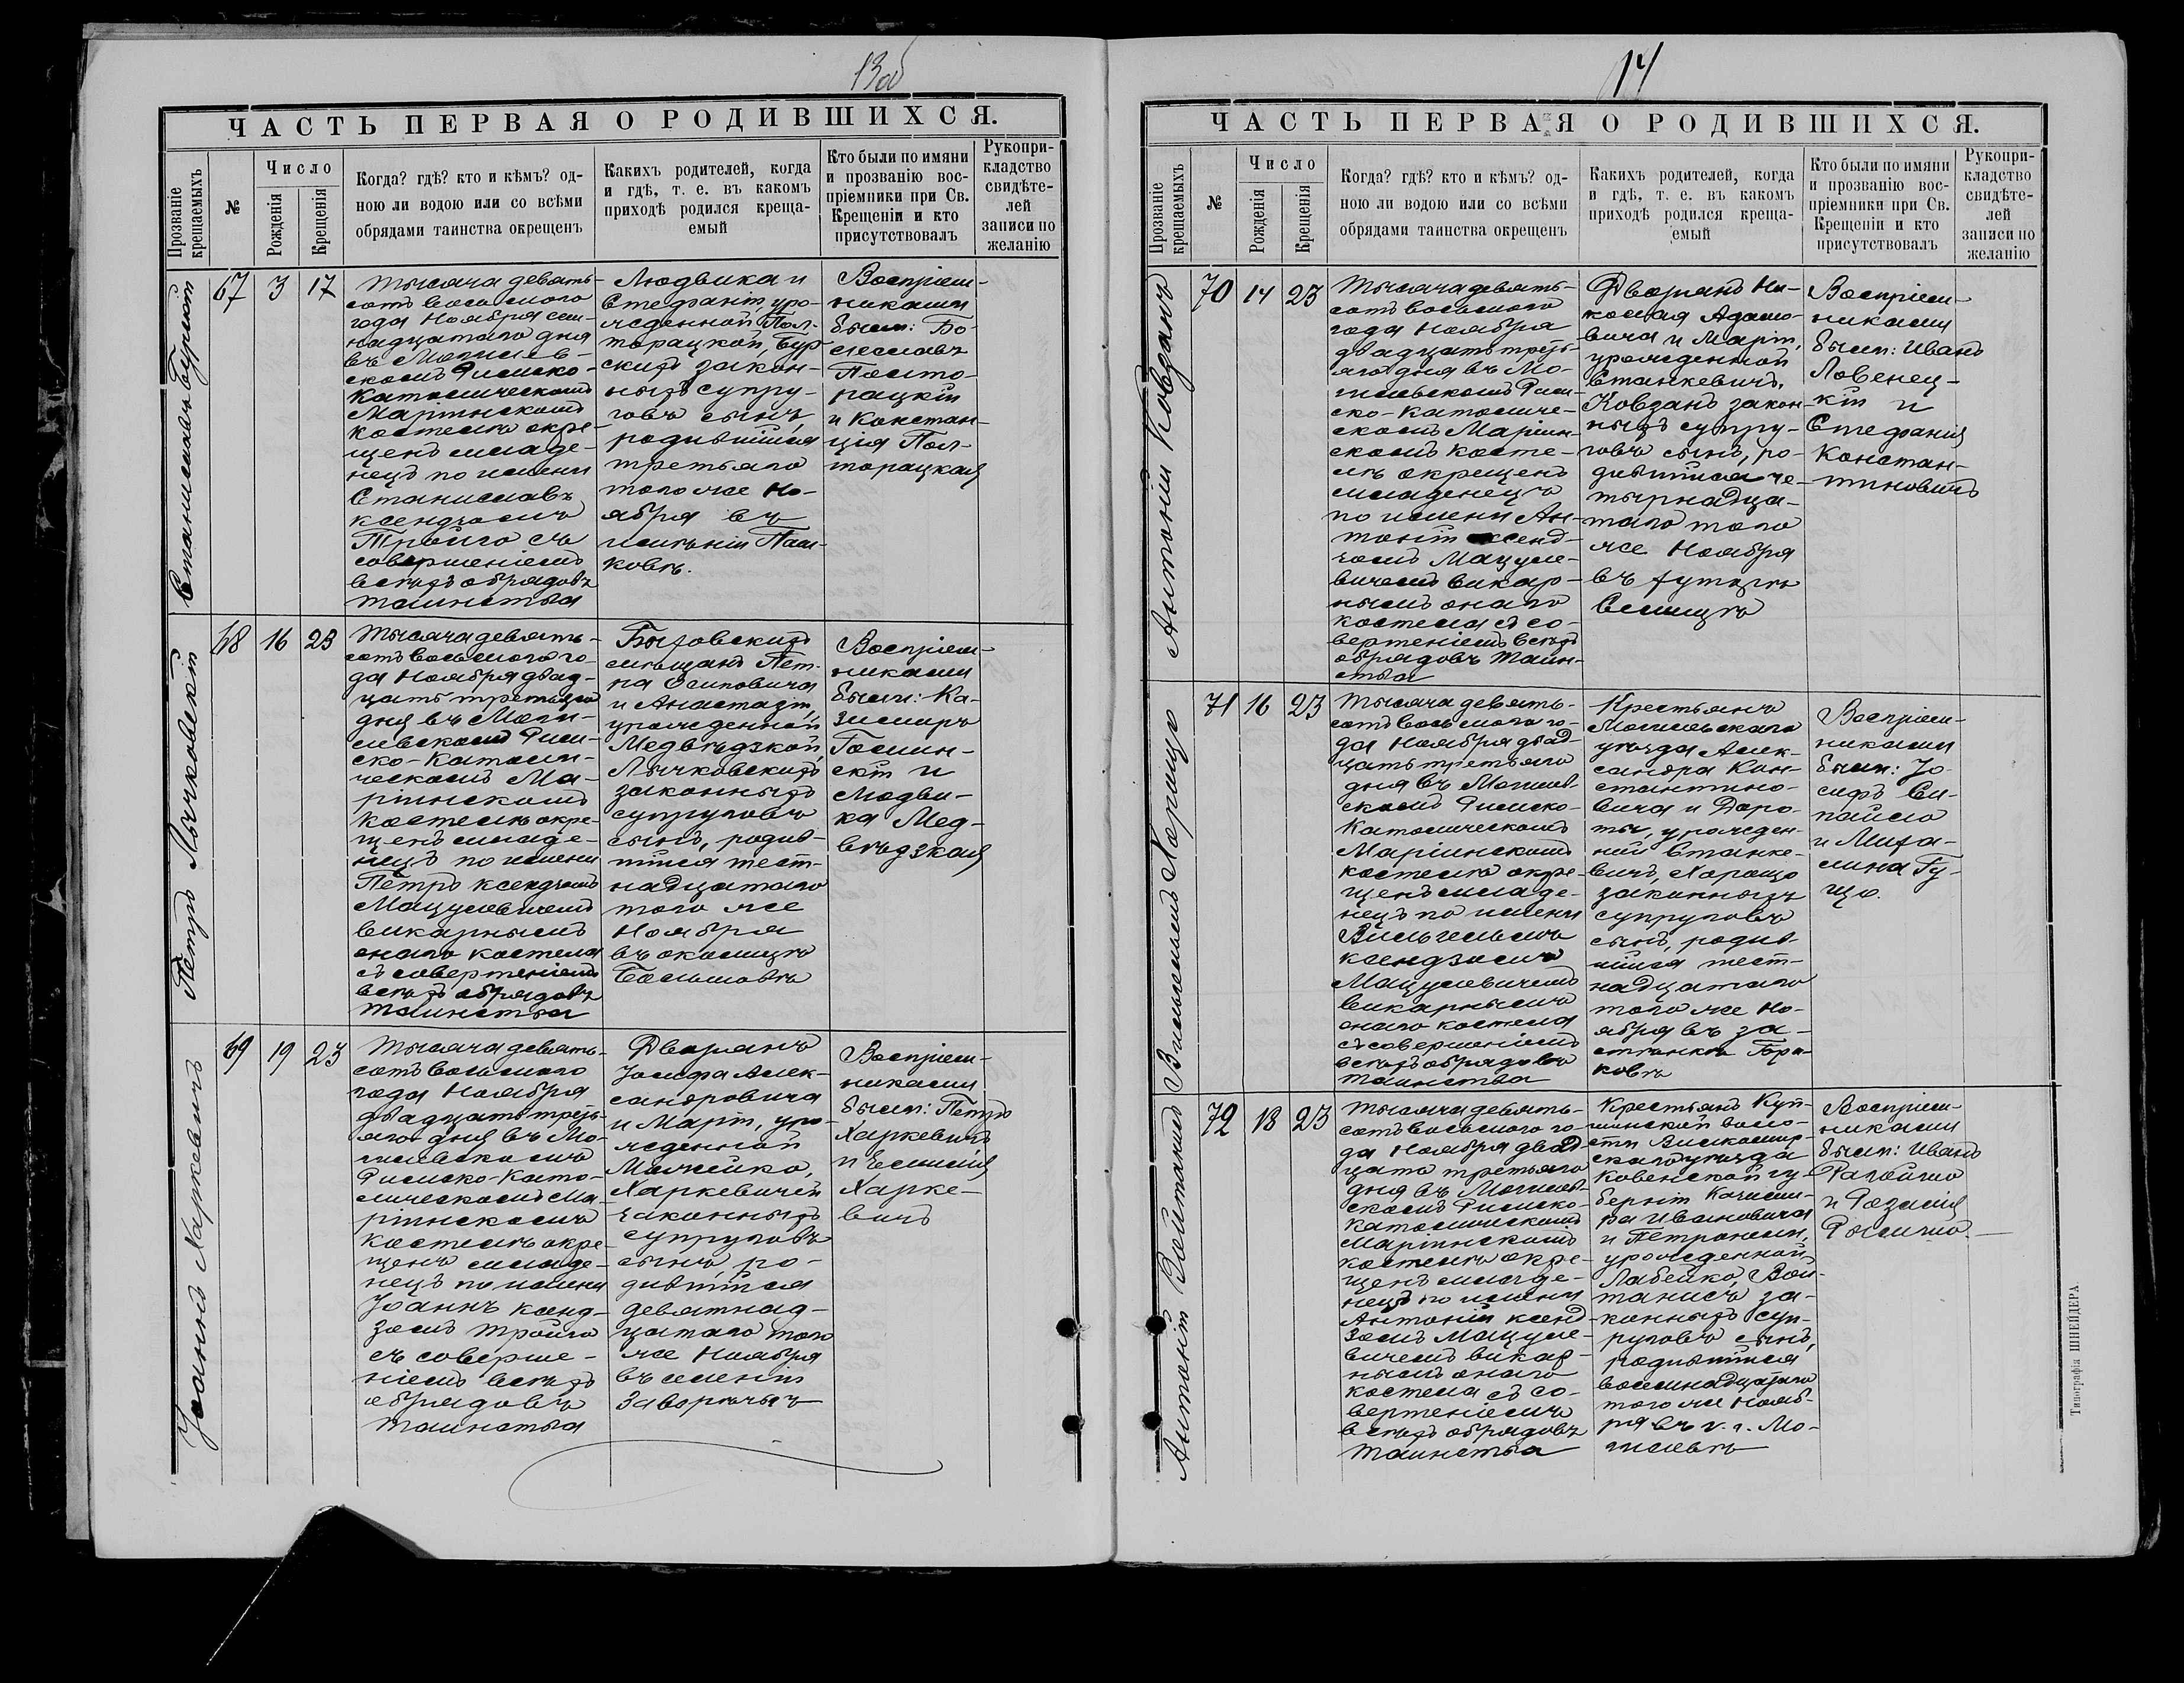 13об
ЧАСТЬ ПЕРВАЯ О РОДИВШИХСЯ.
Прозваніе крещаемыхъ
№
Число
Рожденія
Крещенія
Когда? гдѣ? кто и кѣмъ? од-
ною ли водою или со всѣми
обрядами таинства окрещенъ
Какихъ родителей, когда
и гдѣ, т. е. въ какомъ
приходѣ родился креща-
емый
Кто были по имяни
и прозванію вос-
пріемники при Св.
Крещеніи и кто
присутствовалъ
Рукопри-
кладство
свидѣте-
лей
записи по
желанію
Станиславъ Бурскій
67
3
17
Тысяча девять-
сотъ восьмого
года Ноября сем-
надцатаго дня
въ Могилев-
скомъ Римско-
Католическомъ
Маріинскомъ
костелѣ окре-
щенъ младе-
нецъ по имени
Станиславъ
ксендзомъ
Тройго съ
совершеніемъ
всѣхъ обрядовъ
таинства
Людвика и
Стефаніи, уро-
жденной Пол-
торацкой, Бур-
скихъ закон-
ныхъ супру-
говъ сынъ,
родившійся
третьяго
того же Но-
ября въ
имѣніи Паш-
ковѣ.
Воспріем-
никами
были: Бо-
леславъ
Полто-
рацкій
и Констан-
ція Пол-
торацкая
Петръ Лычковскій
68
16
23
Тысяча девять-
сотъ восьмого го-
да Ноября двад-
цать третьяго
дня въ Моги-
левскомъ Рим-
ско-Католи-
ческомъ Ма-
ріинскомъ
костелѣ окре-
щенъ младе-
нецъ по имени
Петръ ксендзомъ
Мацулевичемъ
викарнымъ
онаго костела
съ совершеніемъ
всѣхъ обрядовъ
таинства
Быховскихъ
мѣщанъ
на Осиповича
и Анастазіи,
урожденной
Медвѣдзкой,
Лычковскихъ
законныхъ
супруговъ
сынъ, родив-
шійся шест-
надцатаго
того же
Ноября
въ околицѣ
Воспріем-
никами
были: Ка-
зимиръ
скій и
Людви-
ка Мед-
вѣдзкая
Іоаннъ Харкевичъ
69
19
23
Тысяча девять-
сотъ восьмого
года Ноября
двадцать треть-
яго дня въ Мо-
гилевскомъ
Римско-Като-
лическомъ Ма-
ріинскомъ
костелѣ окре-
щенъ младе-
нецъ по имени
Іоаннъ ксенд-
зомъ Тройго
съ соверше-
ніемъ всѣхъ
обрядовъ
таинства
Дворянъ
Іосифа Алек-
сандровича
и Маріи, уро-
жденной
Можейко,
Харкевичей
законныхъ
супруговъ
сынъ, ро-
дившійся
девятнад-
цатаго того
же Ноября
въ имѣніи
Воспріем-
никами
были: Петръ
Харкевичъ
и Эмилія
Харке-
вичъ
14
ЧАСТЬ ПЕРВАЯ О РОДИВШИХСЯ.
Прозваніе крещаемыхъ
№
Число
Рожденія
Крещенія
Когда? гдѣ? кто и кѣмъ? од-
ною ли водою или со всѣми
обрядами таинства окрещенъ
Какихъ родителей, когда
и гдѣ, т. е. въ какомъ
приходѣ родился креща-
емый
Кто были по имяни
и прозванію вос-
пріемники при Св.
Крещеніи и кто
присутствовалъ
Рукопри-
кладство
свидѣте-
лей
записи по
желанію
Антоній Ковзанъ
70
14
23
Тысяча девять-
сотъ восьмого
года Ноября
двадцать треть-
яго дня въ Мо-
гилевскомъ Рим-
ско-Католиче-
скомъ Маріин-
скомъ косте-
лѣ окрещенъ
младенецъ
по имени Ан-
тоній ксенд-
зомъ Мацуле-
вичемъ викар-
нымъ онаго
костела съ со-
вершеніемъ всѣхъ
обрядовъ таин-
ства
Дворянъ Ни-
колая Адамо-
вича и Маріи,
урожденной
Станкевичъ,
Ковзанъ закон-
ныхъ супру-
говъ сынъ, ро-
дившійся че-
тырнадца-
таго того
же Ноября
въ хуторѣ
Воспріем-
никами
были: Иванъ
Ловенец-
кій и
Стефанія
Констан-
тиновичъ
Вильгельмъ Хорощо
71
16
23
Тысяча девять-
сотъ восьмого го-
да Ноября двад-
цать третьяго
дня въ Могилев-
скомъ Римско-
Католическомъ
Маріинскомъ
костелѣ окре-
щенъ младе-
нецъ по имени
Вильгельмъ
ксендзомъ
Мацулевичемъ
викарнымъ
онаго костела
съ совершеніемъ
всѣхъ обрядовъ
таинства
Крестьянъ
Могилевскаго
уѣзда Алек-
сандра Кон-
стантино-
вича и Доро-
ты, урожден-
ной Станке-
вичъ, Хорощо
законныхъ
супруговъ
сынъ, родив-
шійся шест-
надцатаго
того же Но-
ября въ за-
стѣнкѣ
Воспріем-
никами
были: Іо-
сифъ
и Миха-
лина
Антоній Войтанисъ
72
18
23
Тысяча девять-
сотъ восьмого го-
да Ноября двад-
цать третьяго
дня въ Могилев-
скомъ Римско-
католическомъ
Маріинскомъ
костелѣ окре-
щенъ младе-
нецъ по имени
Антоній ксенд-
зомъ Мацуле-
вичемъ викар-
нымъ онаго
костела съ со-
вершеніемъ
всѣхъ обрядовъ
таинства
Крестьянъ
воло-
сти Вилкомир-
скаго уѣзда
Ковенской гу-
берніи Казими-
ра Ивановича
и Петронели,
урожденной
Лабейко, Вой-
танисъ за-
конныхъ суп-
руговъ сынъ,
родившійся
восемнадцатаго
того же Нояб-
ря въ г. Мо-
гилевѣ
Воспріем-
никами
были: Иванъ
и Розалія
Типографія ШНЕЙДЕРА